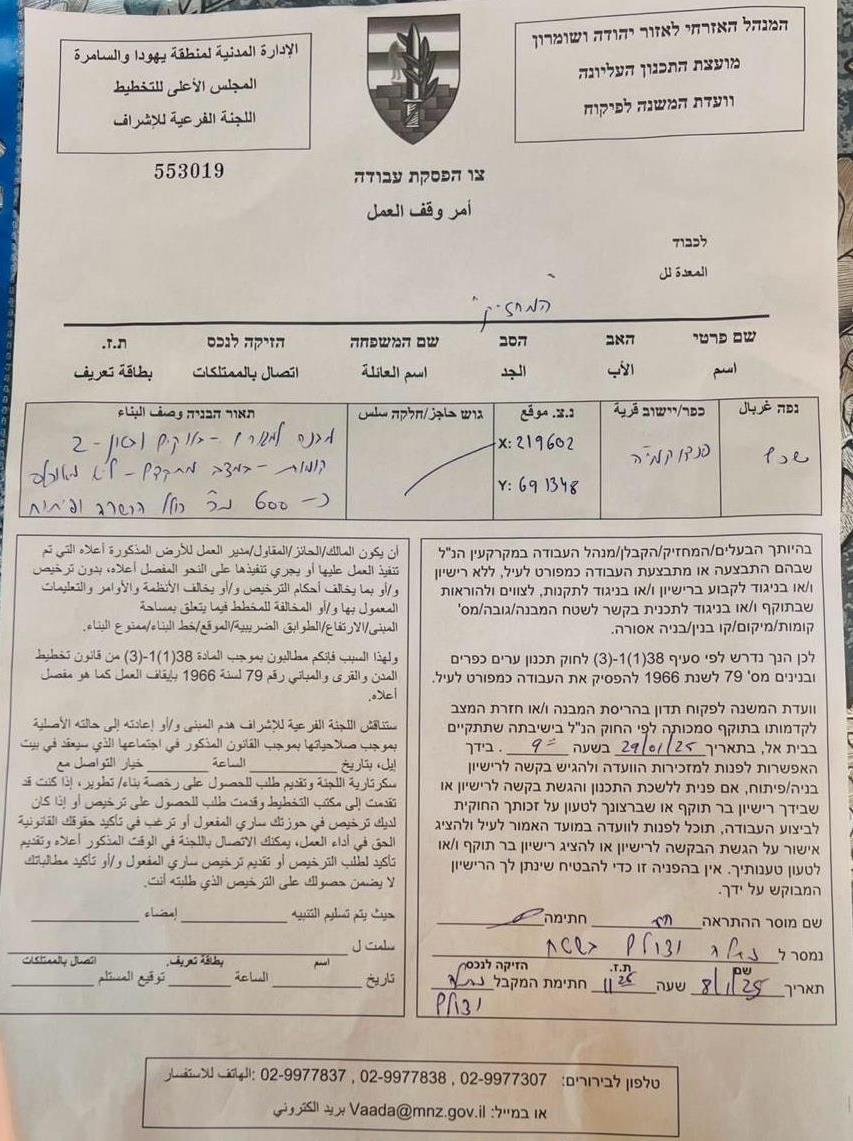 המנהל האזרחי לאזור יהודה ושומרון
מועצת התכנון העליונה
וועדת המשנה לפיקוח
الإدارة المدنية لمنطقة يهودا والسامرة
المجلس الأعلى للتخطيط
اللجنة الفرعية للإشراف
553019
צו הפסקת עבודה
أمر وقف العمل
לכבוד
המעדה لل
"המחזיק"
שם פרטי האב הסב שם המשפחה הזיקה לנכס ת.ז.
اسم الأب الجد اسم العائلة اتصال بالممتلكات بطاقة تعريف
נפה غربال כפר/יישוב قرية נ.צ. موقع גוש حاجز/חלקה سلس תאור הבניה وصف البناء
שכם X: 219602 מבנה למגורים - בלוקים ובטון - 2
Y: 691348 קומות - במצב מתקדם - לא מאוכלס
כ- 600 מ"ר כולל
בהיותך הבעלים/המחזיק/הקבלן/מנהל העבודה במקרקעין הנ"ל
שבהם התבצעה או מתבצעת העבודה כמפורט לעיל, ללא רישיון
ו/או בניגוד לקבוע ברישיון ו/או בניגוד לתקנות, לצווים ולהוראות
שבתוקף ו/או בניגוד לתכנית בקשר לשטח המבנה/גובה/מס'
קומות/מיקום/קו בנין/בניה אסורה.
לכן הנך נדרש לפי סעיף 38(1)-1(3) לחוק תכנון ערים כפרים
ובנינים מס' 79 לשנת 1966 להפסיק את העבודה כמפורט לעיל.
וועדת המשנה לפקוח תדון בהריסת המבנה ו/או חזרת המצב
לקדמותו בתוקף סמכותה לפי החוק הנ"ל בישיבתה שתתקיים
בבית אל, בתאריך 29/01/25 בשעה 9:00. בידך
האפשרות לפנות למזכירות הוועדה ולהגיש בקשה לרישיון
בניה/פיתוח, אם פנית ללשכת התכנון והגשת בקשה לרישיון או
שבידך רישיון בר תוקף או שברצונך לטעון על זכותך החוקית
לביצוע העבודה, תוכל לפנות לוועדה במועד האמור לעיל ולהציג
אישור על הגשת הבקשה לרישיון או להציג רישיון בר תוקף ו/או
לטעון טענותיך. אין בהפניה זו כדי להבטיח שינתן לך הרישיון
המבוקש על ידך.
שם מוסר ההתראה חתימה
נמסר ל נתלה וצולם בשטח
שם ת.ז. הזיקה לנכס
תאריך 8/1/25 שעה 11:25 חתימת המקבל נתלה
וצולם
أن يكون المالك/الحائز/المقاول/مدير العمل للارض المذكورة أعلاه التي تم
تنفيذ العمل عليها أو يجري تنفيذها على النحو المفصل أعلاه، بدون ترخيص
و/أو بما يخالف أحكام الترخيص و/أو يخالف الأنظمة والأوامر والتعليمات
المعمول بها و/أو المخالفة للمخطط فيما يتعلق بمساحة
المبنى/الارتفاع/الطوابق الضريبية/الموقع/خط البناء/ممنوع البناء.
ولهذا السبب فإنكم مطالبون بموجب المادة 38(1)-1(3) من قانون تخطيط
المدن والقرى والمباني رقم 79 لسنة 1966 بإيقاف العمل كما هو مفصل
أعلاه.
ستناقش اللجنة الفرعية للإشراف هدم المبنى و/أو إعادته إلى حالته الأصلية
بموجب صلاحياتها بموجب القانون المذكور في اجتماعها الذي سيعقد في بيت
إيل، بتاريخ الساعة خيار التواصل مع
سكرتارية اللجنة وتقديم طلب للحصول على رخصة بناء/ تطوير، إذا كنت قد
تقدمت إلى مكتب التخطيط وقدمت طلب للحصول على ترخيص أو إذا كان
لديك ترخيص في حوزتك ساري المفعول أو ترغب في تأكيد حقوقك القانونية
الحق في أداء العمل، يمكنك الاتصال باللجنة في الوقت المذكور أعلاه وتقديم
تأكيد لطلب الترخيص أو تقديم ترخيص ساري المفعول و/أو تأكيد مطالباتك
لا يضمن حصولك على الترخيص الذي طلبته أنت.
حيث يتم تسليم التنبيه إمضاء
سلمت ل
اسم بطاقة تعريف. اتصال بالممتلكات
تاريخ الساعة توقيع المستلم
טלפון לבירורים: 02-9977307 , 02-9977838 , 02-9977837 الهاتف للاستفسار:
או במייל: Vaada@mnz.gov.il بريد الكتروني